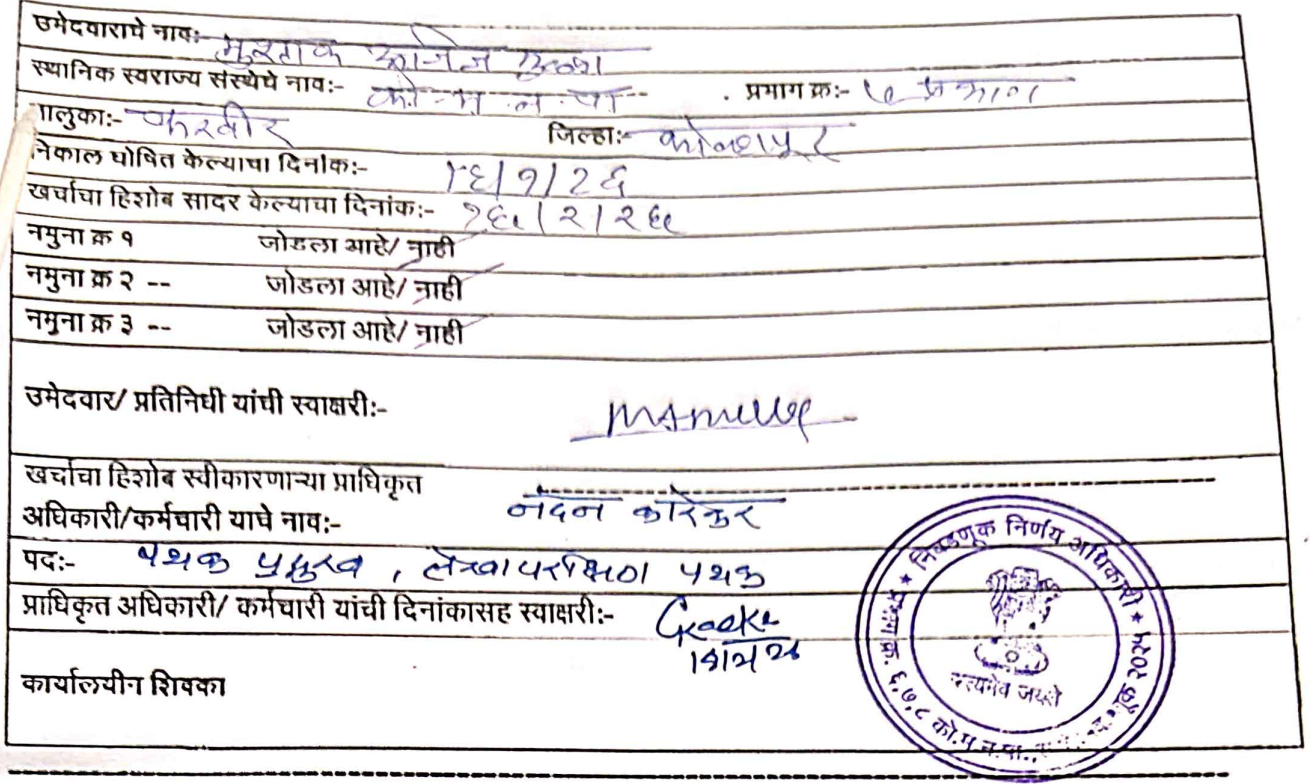 उमेदवाराचे नावः- मुश्ताक अजिज मुल्ला
स्थानिक स्वराज्य संस्थेचे नावः- को. म. न. पा. प्रमाग क्रः-
तालुकाः- करवीर जिल्हाः- कोल्हापूर
निकाल घोषित केल्याचा दिनांकः- १६/१/२६
खर्चाचा हिशोब सादर केल्याचा दिनांकः- १६/२/२६
नमुना क्र १ जोडला आहे/ नाही
नमुना क्र २ -- जोडला आहे/ नाही
नमुना क्र ३ -- जोडला आहे/ नाही
उमेदवार/ प्रतिनिधी यांची स्वाक्षरीः-
खर्चाचा हिशोब स्वीकारणाऱ्या प्राधिकृत
अधिकारी/कर्मचारी याचे नावः- नंदन कारेकर
पदः- पथक प्रमुख, लेखापरीक्षण पथक
प्राधिकृत अधिकारी/ कर्मचारी यांची दिनांकासह स्वाक्षरीः-
कार्यालयीन शिक्का
निवडणुक निर्णय अधिकारी
सत्यमेव जयते
क्र. ६,७,८ को.म.न.पा.